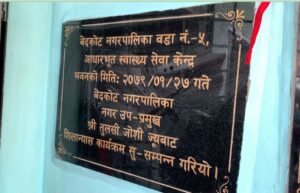 बेदकोट नगरपालिका वडा नं.-५,
आधारभूत स्वास्थ्य सेवा केन्द्र
भवनको मिति: २०७९/०१/२७ गते
बेदकोट नगरपालिका
नगर उप-प्रमुख
श्री तुलसी जोशी ज्यूबाट
शिलान्यास कार्यक्रम सु-सम्पन्न गरियो।